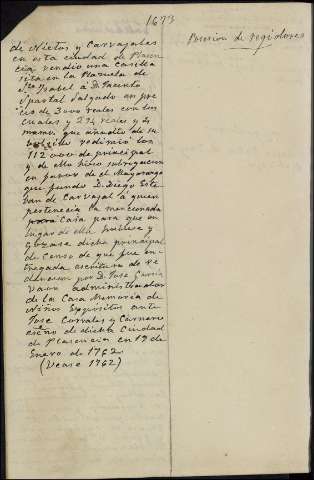 1673
Posesion de regidores
de Nietos y Carvajales
en esta ciudad de Plasen
cia vendio una casilla
sita en la Plazuela de
Sta Ysabel á D. Jacinto
Salgado en pre
cio de 3000 reales con los
cuales y 294 reales y 4
mrms. que añadio de su
bolsillo redimió los
112000 de principal
y de ello hizo subrogacion
en favor de el Mayorazgo
que fundo D. Diego Este
ban de Carvajal á quien
pertenecia la mencionada
casa para que en
lugar de ella hubiese y
gozase dicho principal
de censo de que fue en
tregada escritura de re
dencion por D. Jose Garcia
administrador
de la Casa Memoria de
Niños Expósitos ante
Jose Corrales y
escno de dicha Ciudad
de Plasencia en 19 de
Enero de 1762
(Vease 1762)